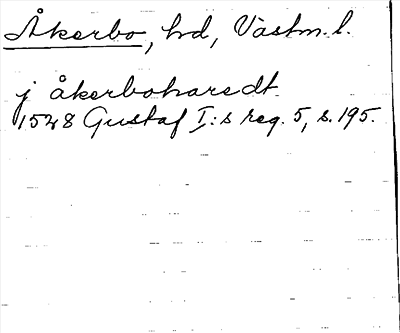 Åkerbo, hd, Västm. l.
j åkerboharedt
1528 Gustaf I:s reg. 5, s. 195.